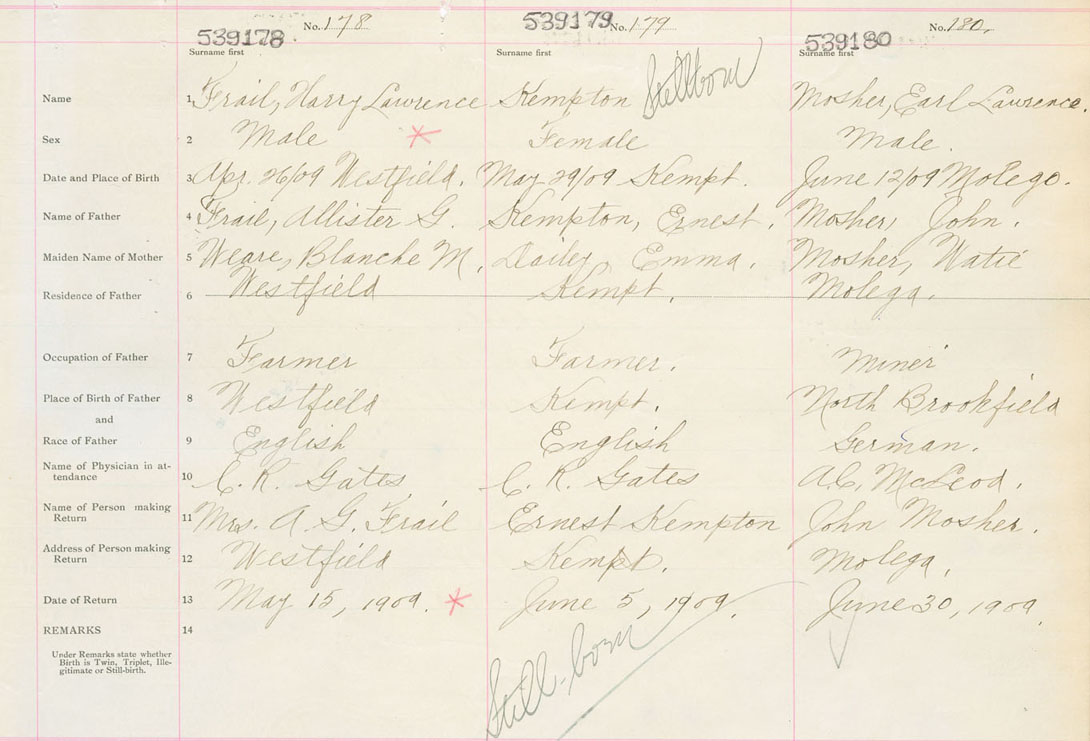 539178 No. 178 539179 No. 179 539180 No. 180.
Surname first Surname first Surname first
Stillborn
Name 1 Frail, Harry Lawrence Kempton Mosher, Earl Lawrence.
Sex 2 Male Female Male.
Date and Place of Birth 3 Apr. 26/09 Westfield. May 29/09 Kempt. June 12/09 Molega.
Name of Father 4 Frail, Allister G. Kempton, Ernest. Mosher, John.
Maiden Name of Mother 5 Weare, Blanche M. Dailey, Emma. Mosher, Watie
Residence of Father 6 Westfield Kempt. Molega.
Occupation of Father 7 Farmer Farmer. Miner
Place of Birth of Father 8 Westfield Kempt. North Brookfield
and
Race of Father 9 English English German.
Name of Physician in at-
tendance 10 C. R. Gates C. R. Gates A.C. McLeod.
Name of Person making
Return 11 Mrs. A. G. Frail Ernest Kempton John Mosher.
Address of Person making
Return 12 Westfield Kempt. Molega.
Date of Return 13 May 15, 1909. June 5, 1909 June 30, 1909
REMARKS 14
Under Remarks state whether
Birth is Twin, Triplet, Ille-
gitimate or Still-birth.
Still-born